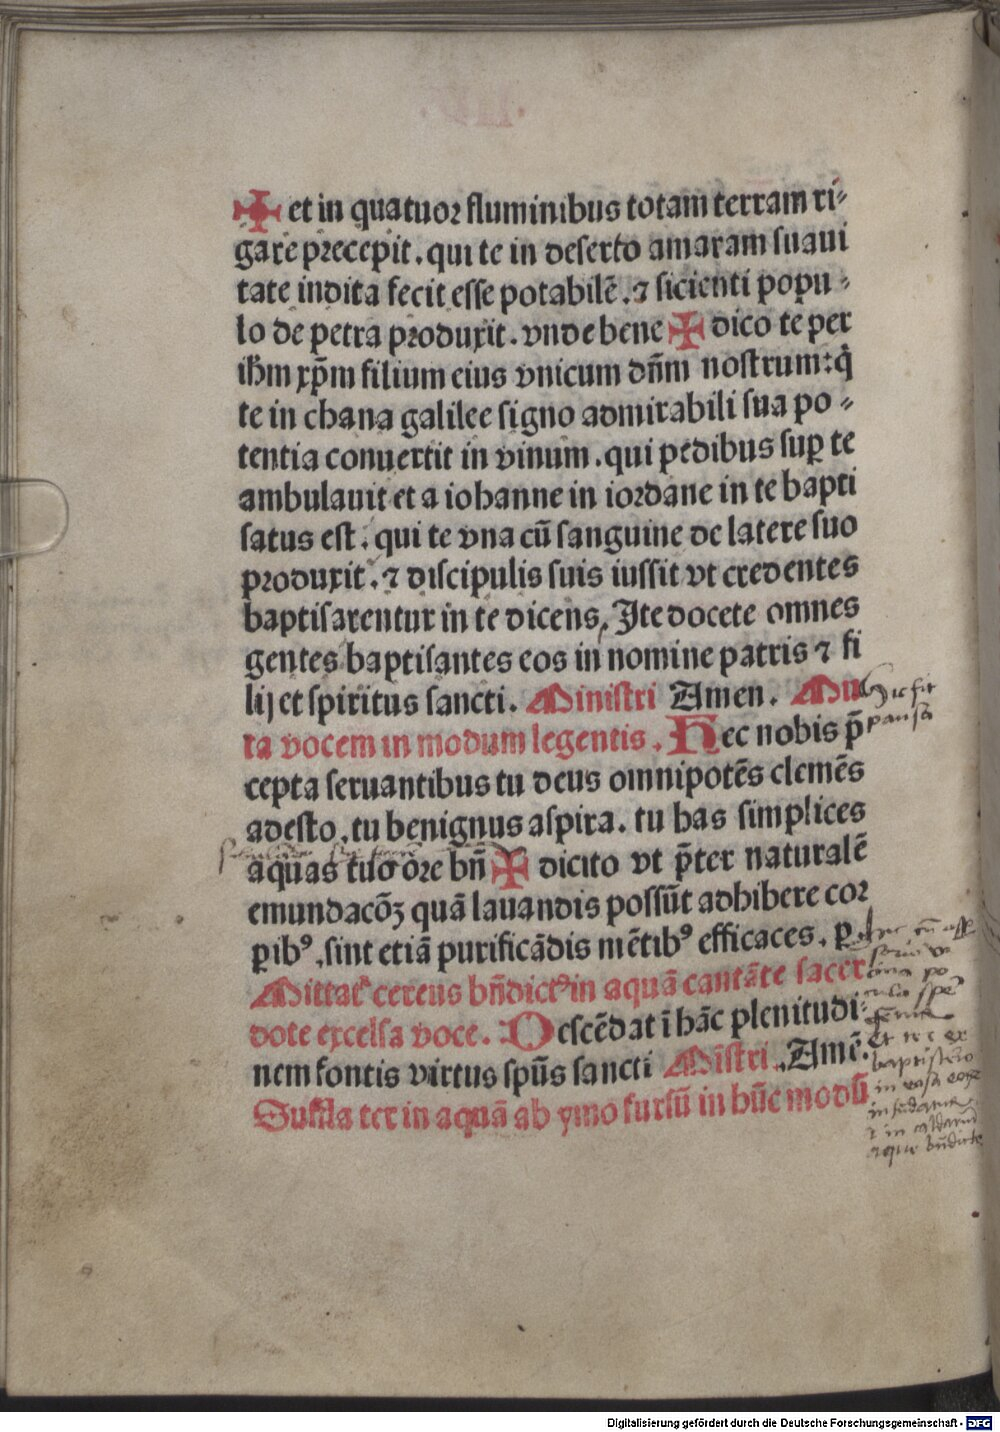 ✠ et in quatuor fluminibus totam terram ri⸗
gare precepit. qui te in deserto amaram suaui
tate indita fecit esse potabilē. ⁊ sicienti popu⸗
lo de petra produxit. vnde bene ✠ dico te per
ihm xp̄m filium eius vnicum dn̄m nostrum: q̇
te in chana galilee signo admirabili sua po⸗
tentia conuertit in vinum. qui pedibus sup̲ te
ambulauit et a iohanne in iordane in te bapti
satus est. qui te vna cū sanguine de latere suo
produxit. ⁊ discipulis suis iussit vt credentes
baptisarentur in te dicens, Ite docete omnes
gentes baptisantes eos in nomine patris ⁊ fi
lij et spiritus sancti. Ministri Amen. Mu
ta vocem in modum legentis. Hec nobis p̄
cepta seruantibus tu deus omnipotēs clemēs
adesto. tu benignus aspira. tu has simplices
aquas tuo ore bn̄ ✠ dicito vt p̄ter naturalē
emundacōꝫ quā lauandis possūt adhibere cor
p̲ibꝰ. sint etiā purificādis mētibꝰ efficaces. p̲
Mittat᷑ cereus bn̄dictꝰ in aquā cantāte sacer
dote excelsa voce. Descēdat ī hāc plenitudi⸗
nem fontis virtus sp̄us sancti Mīstri. Amē.
Suffla ter in aquā ab ymo sursū in hūc modū
hic fit
pausa
baptisterio
in vasa
aque bn̄dicte
Digitalisierung gefördert durch die Deutsche Forschungsgemeinschaft - DFG